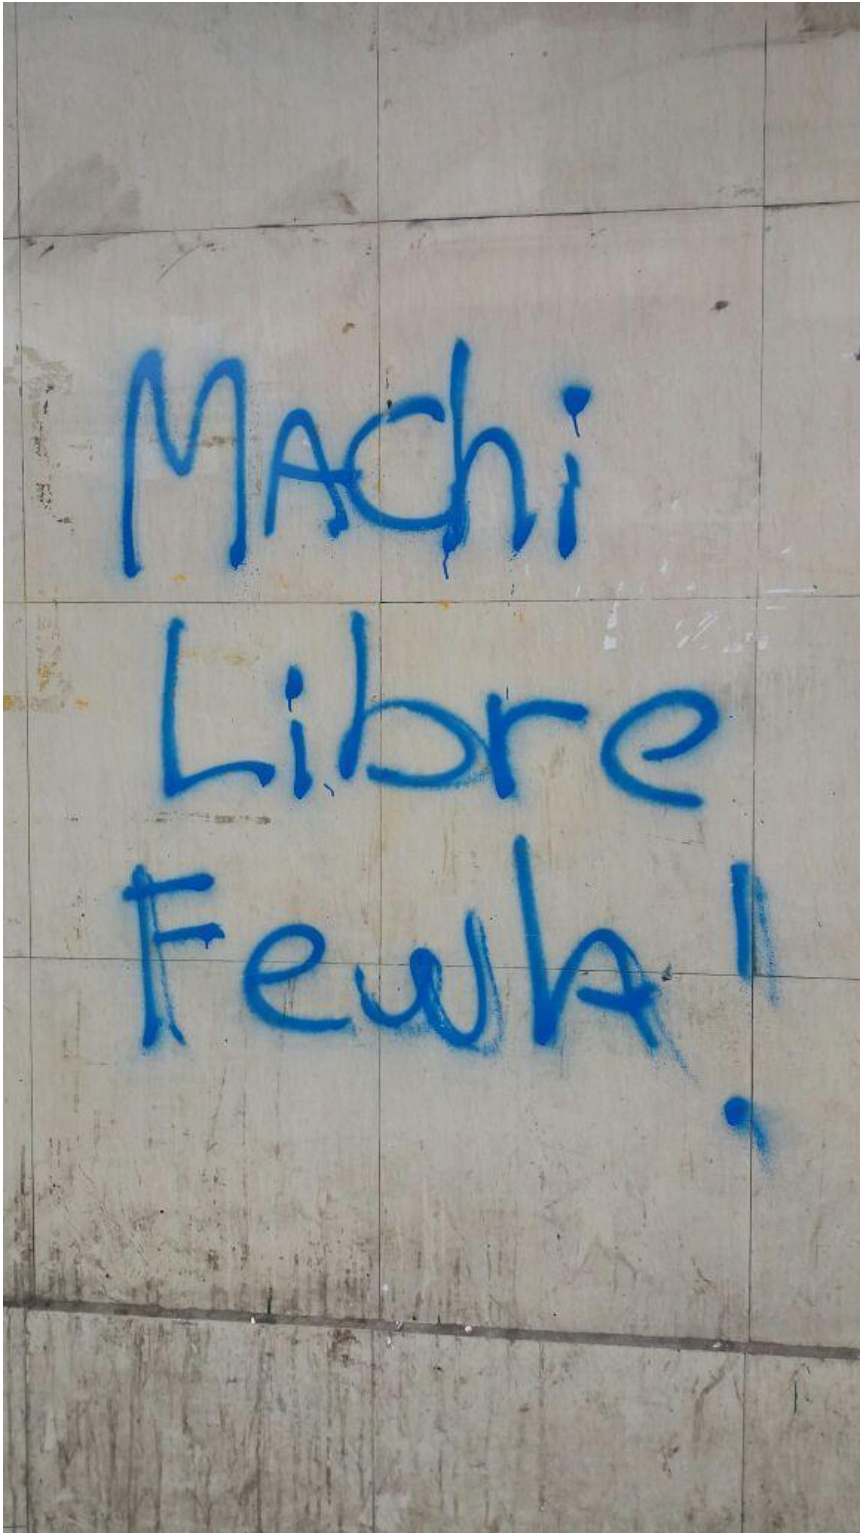 MAChi
Libre
Fewla!